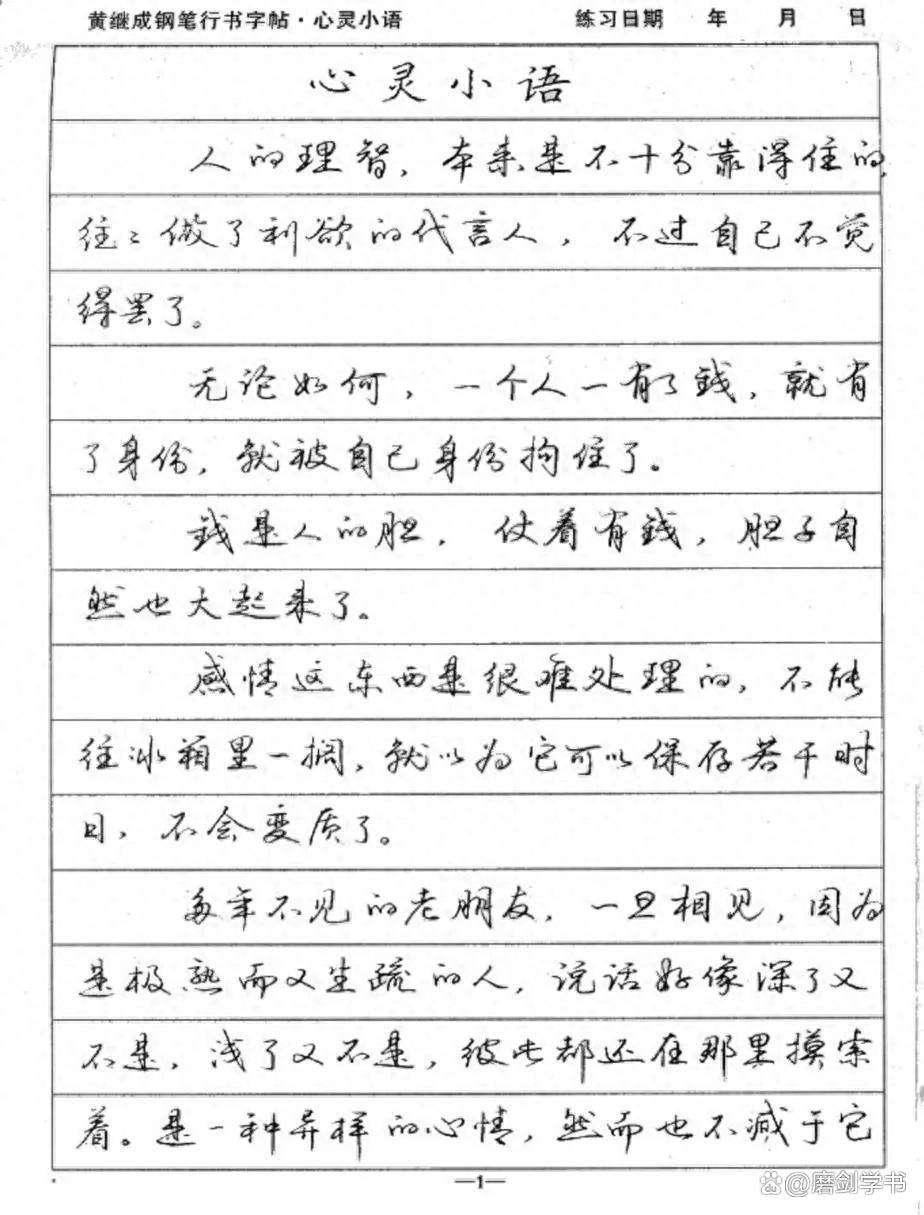 黄继成钢笔行书字帖·心灵小语 练习日期 年 月 日
心灵小语
人的理智，本来是不十分靠得住的，
往々做了利欲的代言人，不过自己不觉
得罢了。
无论如何，一个人一有了钱，就有
了身份，就被自己身份拘住了。
钱是人的胆，仗着有钱，胆子自
然也大起来了。
感情这东西是很难处理的，不能
往冰箱里一搁，就以为它可以保存若干时
日，不会变质了。
多年不见的老朋友，一旦相见，因为
是极熟而又生疏的人，说话好像深了又
不是，浅了又不是，彼此都还在那里摸索
着。是一种异样的心情，然而也不减于它
—1—
@磨剑学书